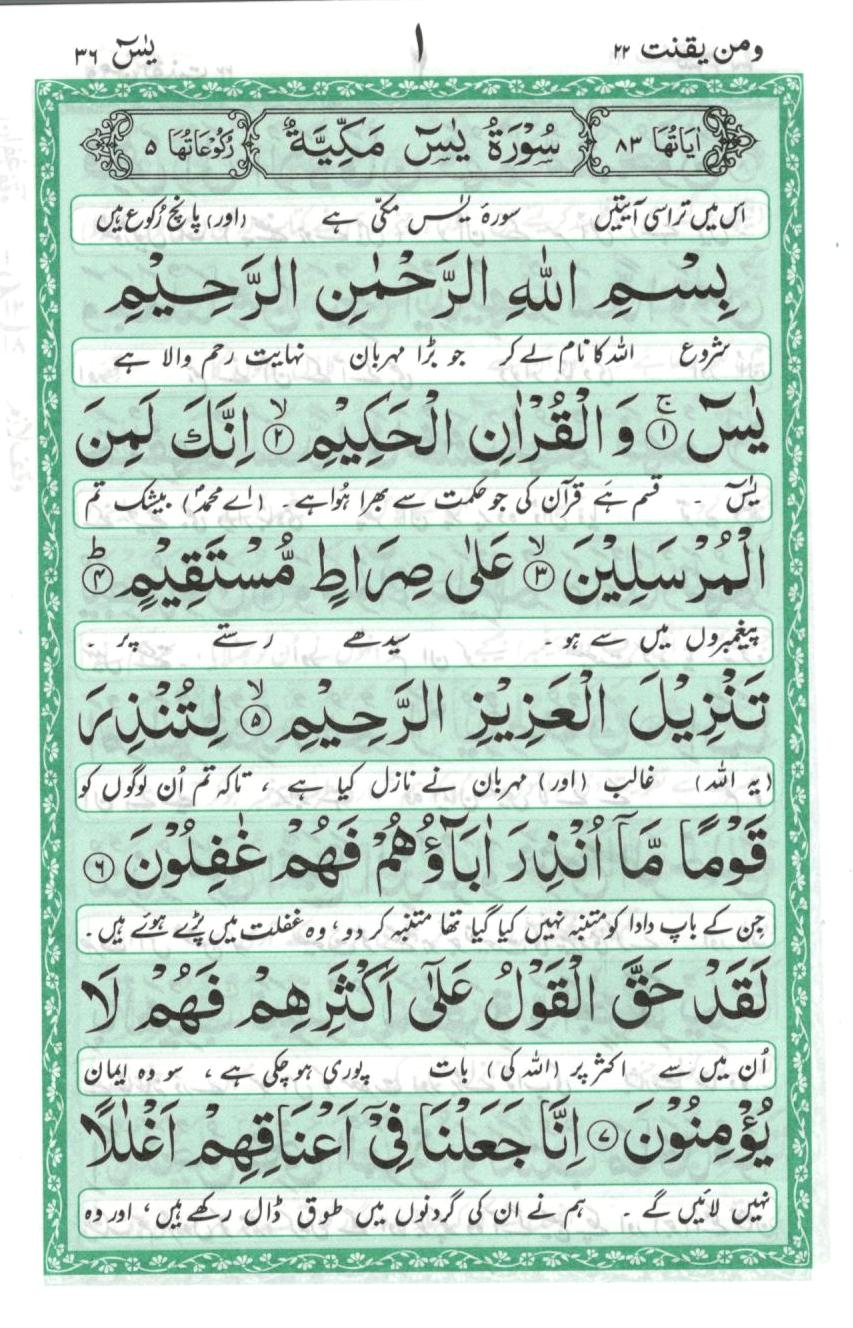 ومن یقنت ۲۲ ١ یٰسٓ ۳۶
اٰیَاتُهَا ۸۳ سُوْرَةُ یٰسٓ مَكِّیَّةٌ رُكُوْعَاتُهَا ۵
اس میں تراسی آیتیں سورۂ یٰس مکّی ہے (اور) پانچ رُکوع ہیں
بِسْمِ اللهِ الرَّحْمٰنِ الرَّحِیْمِ
شروع اللہ کا نام لے کر جو بڑا مہربان نہایت رحم والا ہے
یٰسٓ ۚ﴿۱﴾ وَ الْقُرْاٰنِ الْحَكِیْمِ ۙ﴿۲﴾ اِنَّكَ لَمِنَ
یٰسٓ ۔ قسم ہے قرآن کی جو حکمت سے بھرا ہُوا ہے ۔ (اے محمدؐ) بیشک تم
الْمُرْسَلِیْنَ ۙ﴿۳﴾ عَلٰی صِرَاطٍ مُّسْتَقِیْمٍ ؕ﴿۴﴾
پیغمبروں میں سے ہو ۔ سیدھے رستے پر ۔
تَنْزِیْلَ الْعَزِیْزِ الرَّحِیْمِ ۙ﴿۵﴾ لِتُنْذِرَ
(یہ اللہ) غالب (اور) مہربان نے نازل کیا ہے ، تاکہ تم اُن لوگوں کو
قَوْمًا مَّاۤ اُنْذِرَ اٰبَآؤُهُمْ فَهُمْ غٰفِلُوْنَ ﴿۶﴾
جن کے باپ دادا کو متنبہ نہیں کیا گیا تھا متنبہ کر دو ، وہ غفلت میں پڑے ہوئے ہیں ۔
لَقَدْ حَقَّ الْقَوْلُ عَلٰۤی اَكْثَرِهِمْ فَهُمْ لَا
اُن میں سے اکثر پر (اللہ کی) بات پوری ہو چکی ہے ، سو وہ ایمان
یُؤْمِنُوْنَ ﴿۷﴾ اِنَّا جَعَلْنَا فِیْۤ اَعْنَاقِهِمْ اَغْلٰلًا
نہیں لائیں گے ۔ ہم نے ان کی گردنوں میں طوق ڈال رکھے ہیں ، اور وہ